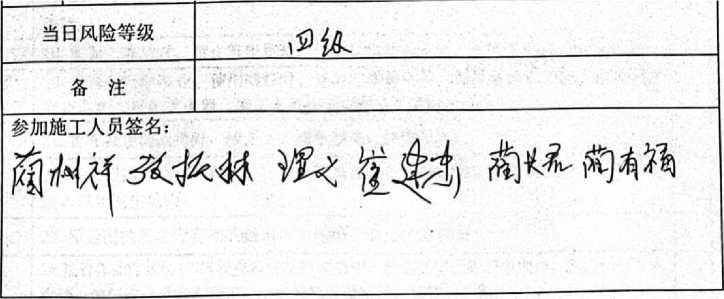 当日风险等级 四级
备注
参加施工人员签名：
蔺树祥 张振林 崔建杰 蔺有福